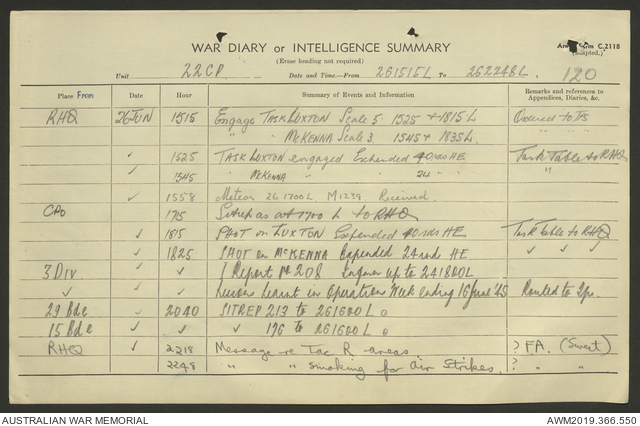 WAR DIARY or INTELLIGENCE SUMMARY
(Erase heading not required)
C.2118
(Adapted.)
Unit 22 CP Date and Time—From 261515L To 262248L. 120
Place From Date Hour Summary of Events and Information Remarks and references to Appendices, Diaries, &c.
RHQ 26 JUN 1515 Engage TASK LUXTON Scale 5. 1525 + 1815 L Ordered to Tps
" " McKENNA Scale 3. 1545 + 1835L " " "
✓ 1525 TASK LUXTON engaged Expended 40 rds HE Task Table to RHQ
✓ 1545 " McKENNA " " 24 " " "
✓ 1558 Meteor 26 1700L M1239 Received.
CPO 1715 Sitrep as at 1700 L to RHQ
✓ 1815 SHOT on LUXTON Expended 40 rds HE Task Table to RHQ
✓ 1825 SHOT on McKENNA Expended 24 rds HE ✓ ✓ ✓
3 Div ✓ ✓ I Report No 208 up to 241800L.
✓ ✓ ✓ Lessons Learnt in Operations Week ending 16 June '45 Routed to 2/c.
29 Bde ✓ 2040 SITREP 213 to 261600L o
15 Bde ✓ ✓ ✓ 176 to 261600L o
RHQ ✓ 2218 Message re Tac R areas. ? FA. (Sweet)
✓ 2248 " " smoking for Air Strikes. ? " "
AUSTRALIAN WAR MEMORIAL AWM2019.366.550